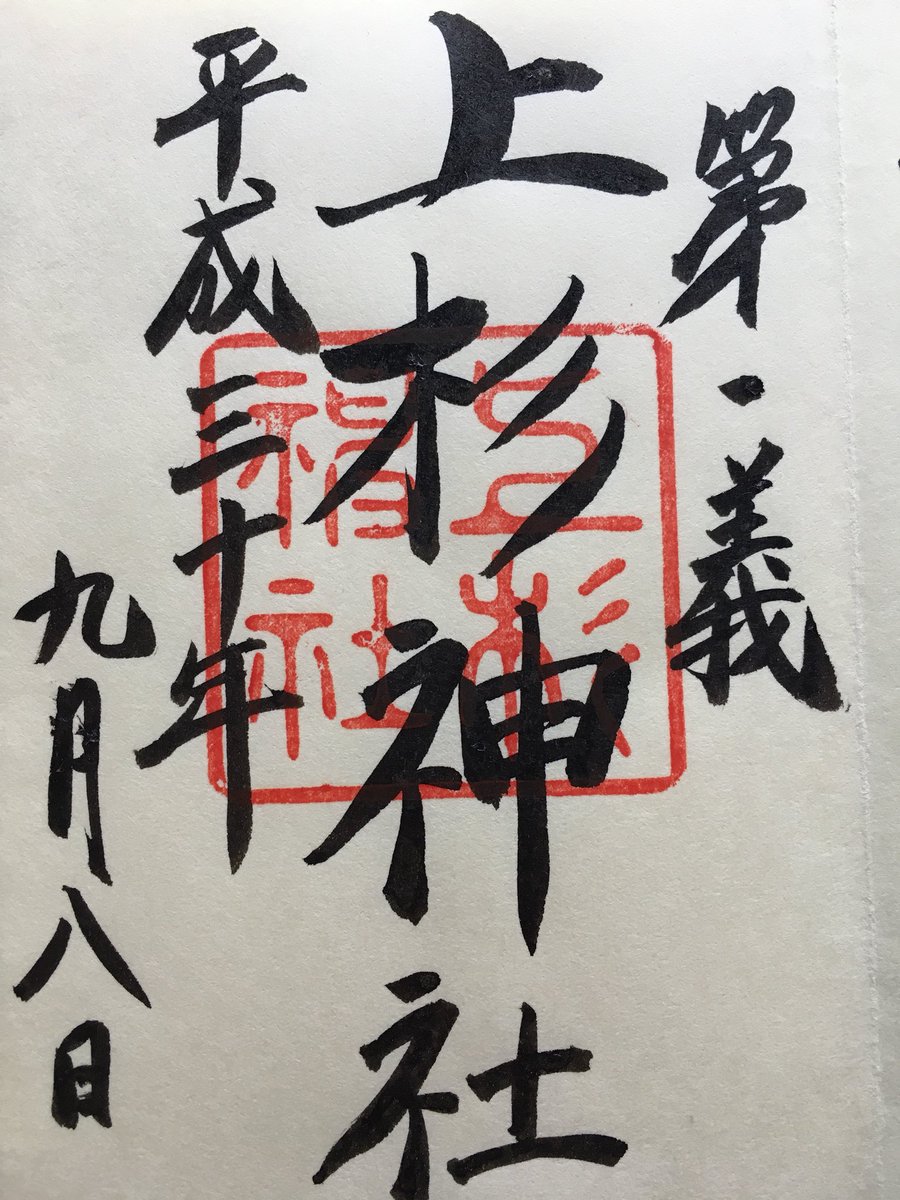 第一義
上杉神社
平成三十年
九月八日
上杉
神社